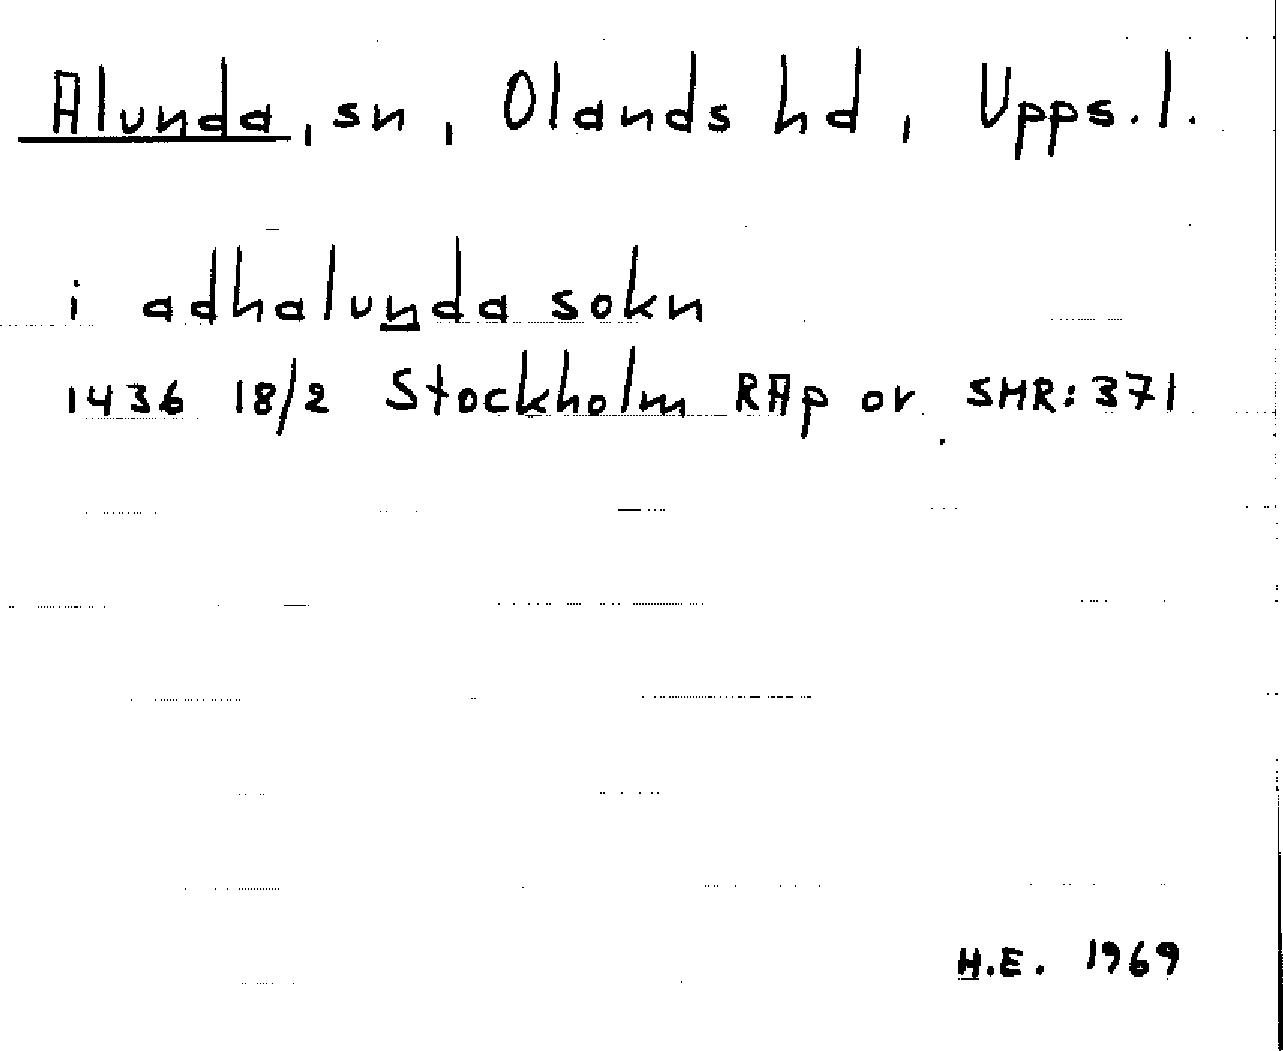 Alunda, sn, Olands hd, Upps.l.
i adhalunda sokn
1436 18/2 Stockholm RAp or SMR: 371
H.E. 1969